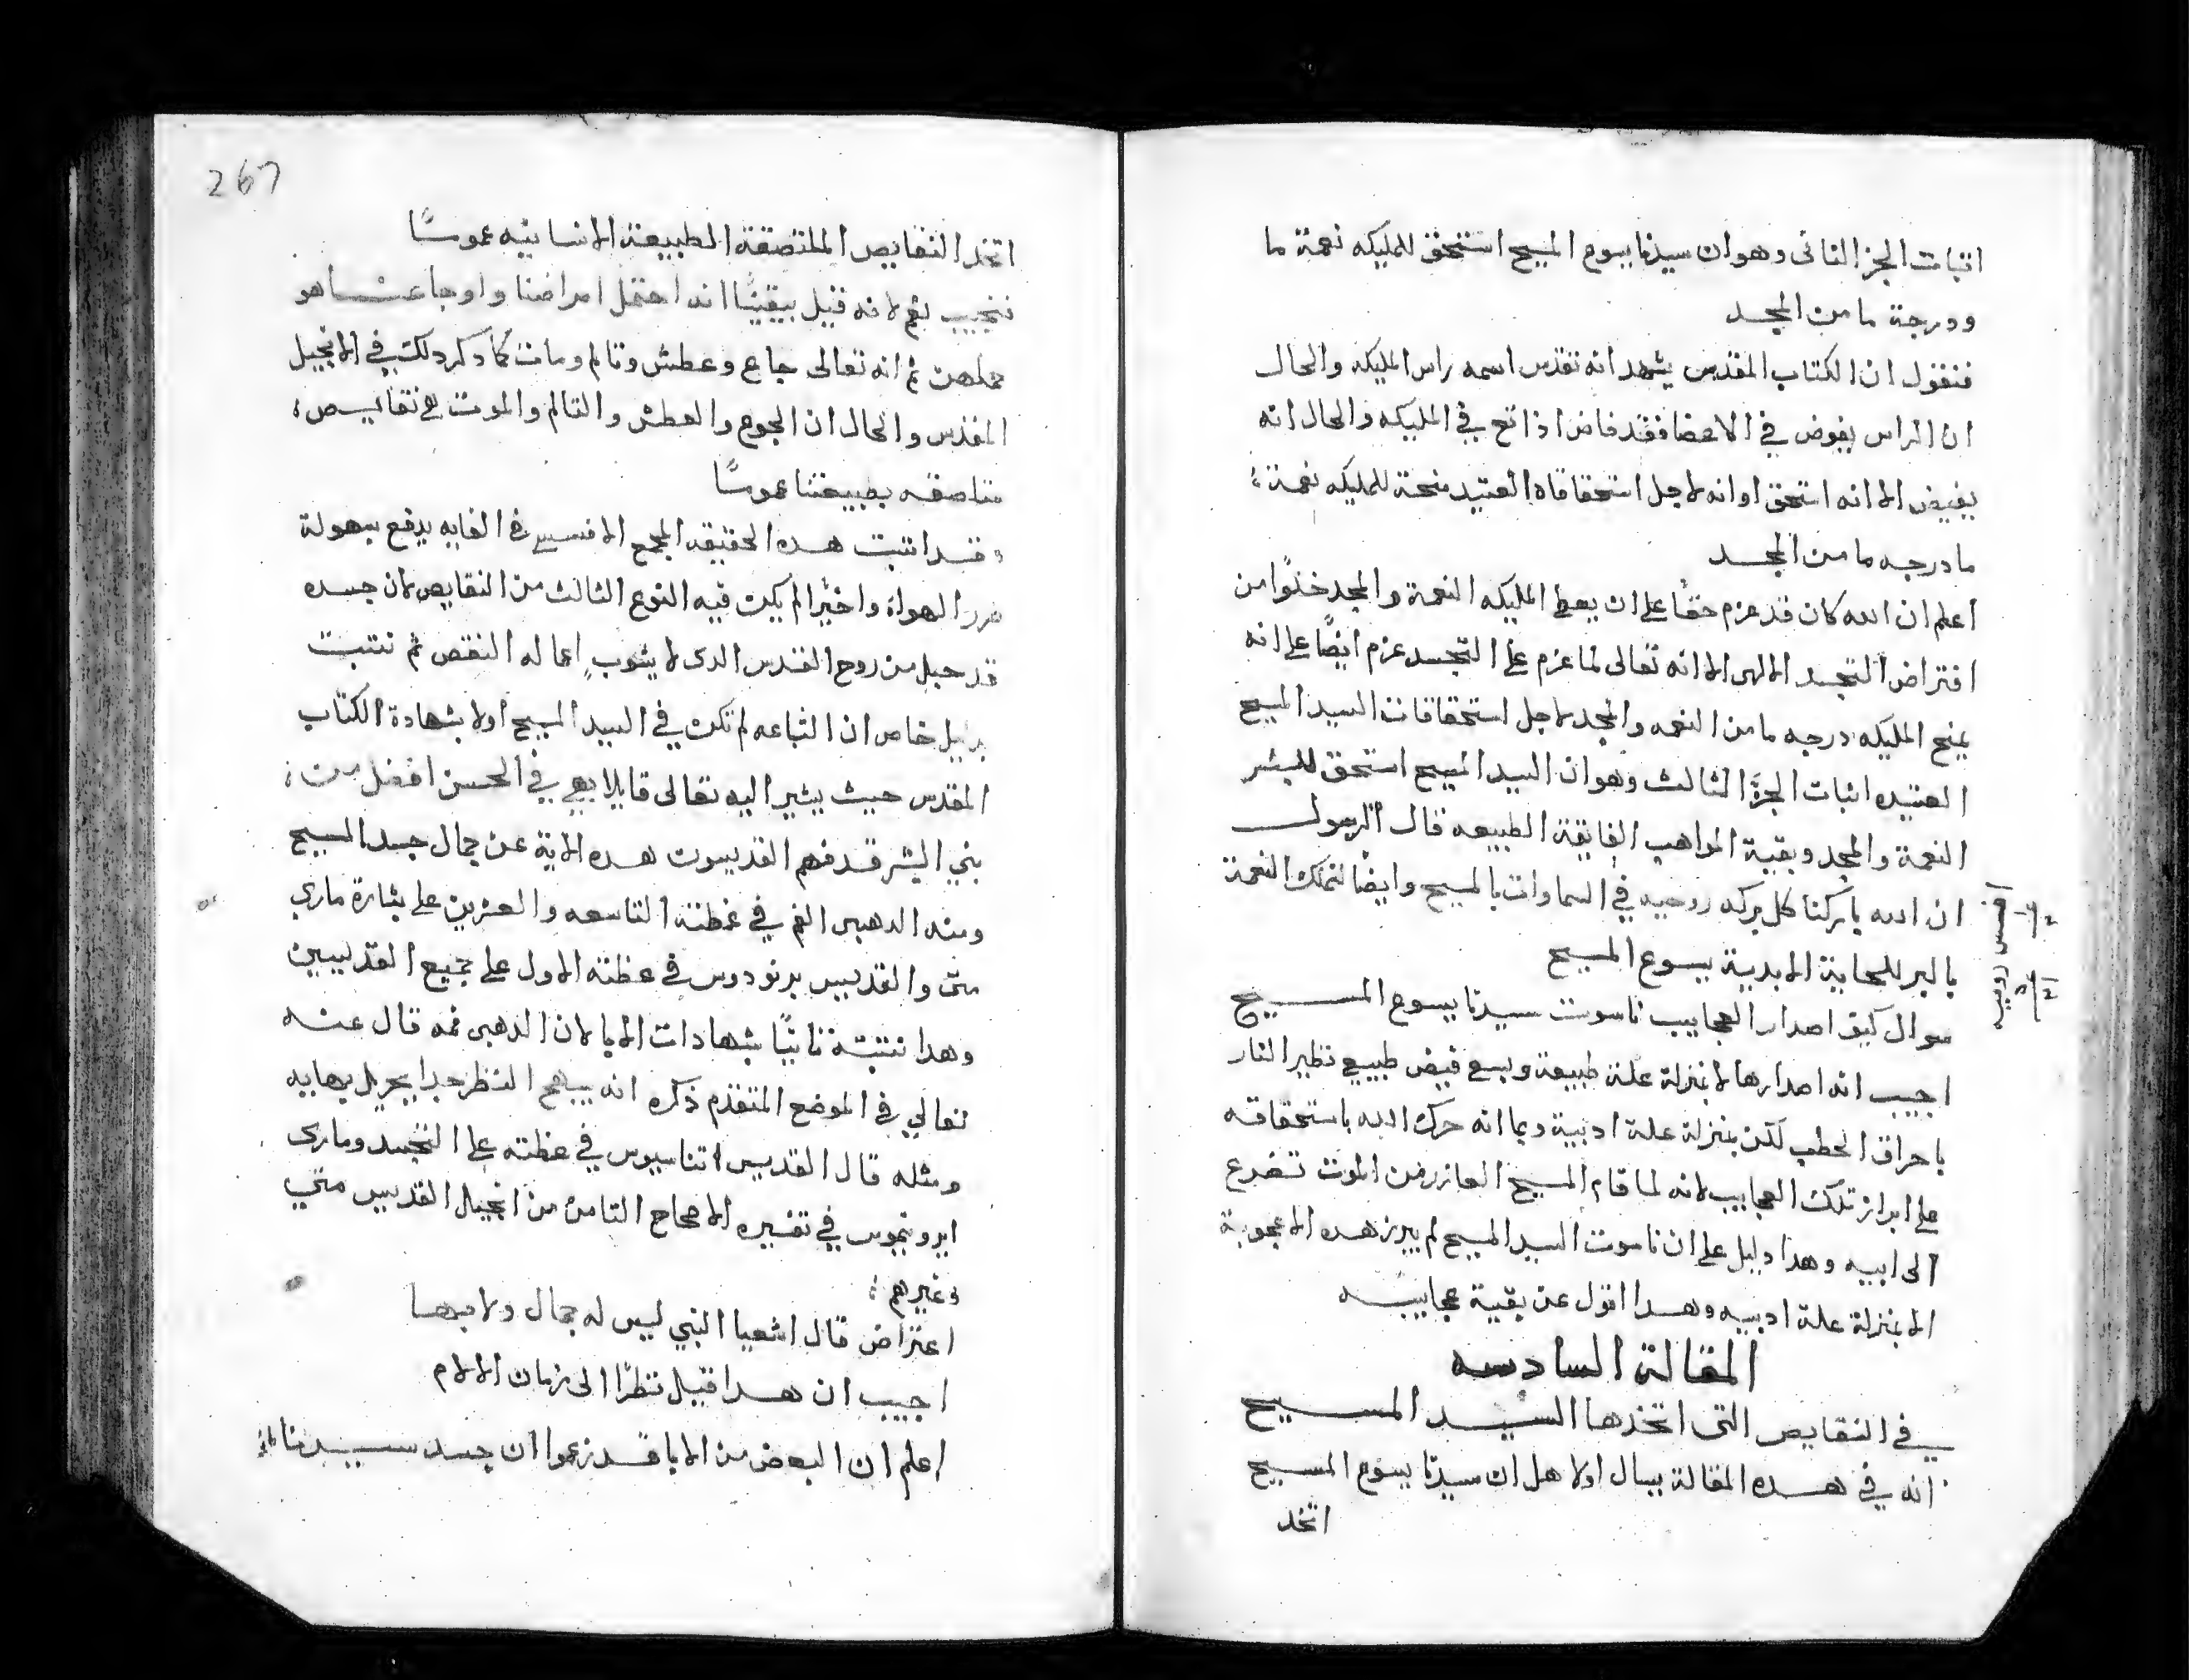 اثبات الجز الثاني وهو ان سيدنا يسوع المسيح استحق للمليكه نعمة ما
ودرجة ما من المجد
فنقول ان الكتاب المقدس يشهد انه تقدس اسمه راس المليكه والحال
ان الراس يفوض في الاعضا فقد فاض اذا تح في المليكه والحال انه
يفيض الا انه استحق او انه لاجل استحقاقاه العتيد منحة للمليكه نعمة
ما درجه ما من المجد
اعلم ان الله كان قد عزم حقًا على ان يعطى المليكه النعمة والمجد خلوًا من
افتراض التجسد الالهى الا انه تعالى لما عزم على التجسد عزم ايضًا على انه
يمنح المليكه درجه ما من النعمه والمجد لاجل استحقاقات السيد المسيح
العتيده اثبات الجزّ الثالث وهو ان السيد المسيح استحق للبشر
النعمة والمجد وبقية المواهب الفايقة الطبيعه قال الرسول
ان الله باركنا كل بركه روحيه في السماوات بالمسيح وايضًا لتملك النعمة
بالبر للحياة الابدية بيسوع المسيح
سوال كيف اصدار العجايب ناسوت سيدنا يسوع المسيح
اجيب انه اصدارها لا بمنزلة علة طبيعة وبسع فيض طبيعي نظير النار
باحراق الحطب لكن بمنزلة علة ادبية وبما انه حرك الله باستحقاقه
على ابراز تلك العجايب لانه لما قام المسيح العازر من الموت تضرع
الى ابيه وهدا دليل على ان ناسوت السيد المسيح لم يبرز هده الاعجوبة
الا بمنزلة علة ادبيه وهدا اقول عن بقية عجايبه
المقالة السادسه
في النقايص التى اتخدها السيد المسيح
انه في هده المقالة يسال اولا هل ان سيدنا يسوع المسيح
اتخد
افسس
روميه
267
اتخد النقايص الملتصقة الطبيعة الانسانيه عموسًا
نجيب نعم لانه قيل يقينًا انه احتمل امراضنا واوجاعنا هو
حملهن ثم انه تعالى جاع وعطش وتالم ومات كما دكر دلك في الانجيل
المقدس والحال ان الجوع والعطش والتالم والموت هي نقايص
متاصقه بطبيعتنا عموسًا
وقد اثبت هده الحقيقه المجمع الافسسي في الغايه يدفع بسهولة
ضرر الهواة واخيرًا لم يكن فيه النوع الثالث من النقايص لان جسده
قد حبل من روح القدس الدى لا يشوب اعماله النقص ثم نتبت
بدليل خاص ان الشاعه لم تكن في السيد المسيح اولا بشهادة الكتاب
المقدس حيث يشير اليه تعالى قايلا بهي في الحسن افضل من
بني البشر قد فهم القديسون هده الاية عن جمال جسد المسيح
ومنه الدهبى الفم في عظته التاسعه والعشرين على بشارة مارى
متى والقديس برنودوس في عظته الاول على جميع القديسين
وهدا نتبته ثانيًا بشهادات الابا لان الدهبى فمه قال عنه
تعالي في الموضع المتقدم ذكره انه يبهج النظر جدا بجزيل بهايه
ومثله قال القديس اتناسيوس في عظته على التجسد ومارى
ايرونيموس في تفسيره الاصحاح التامن من انجيل القديس متي
وغيرهم
اعتراض قال اشعيا النبي ليس له جمال ولا بهـا
اجيب ان هدا قيل نظرًا الى زمان الالام
اعلم ان البعض من الابا قد زعموا ان جسد سيدنا